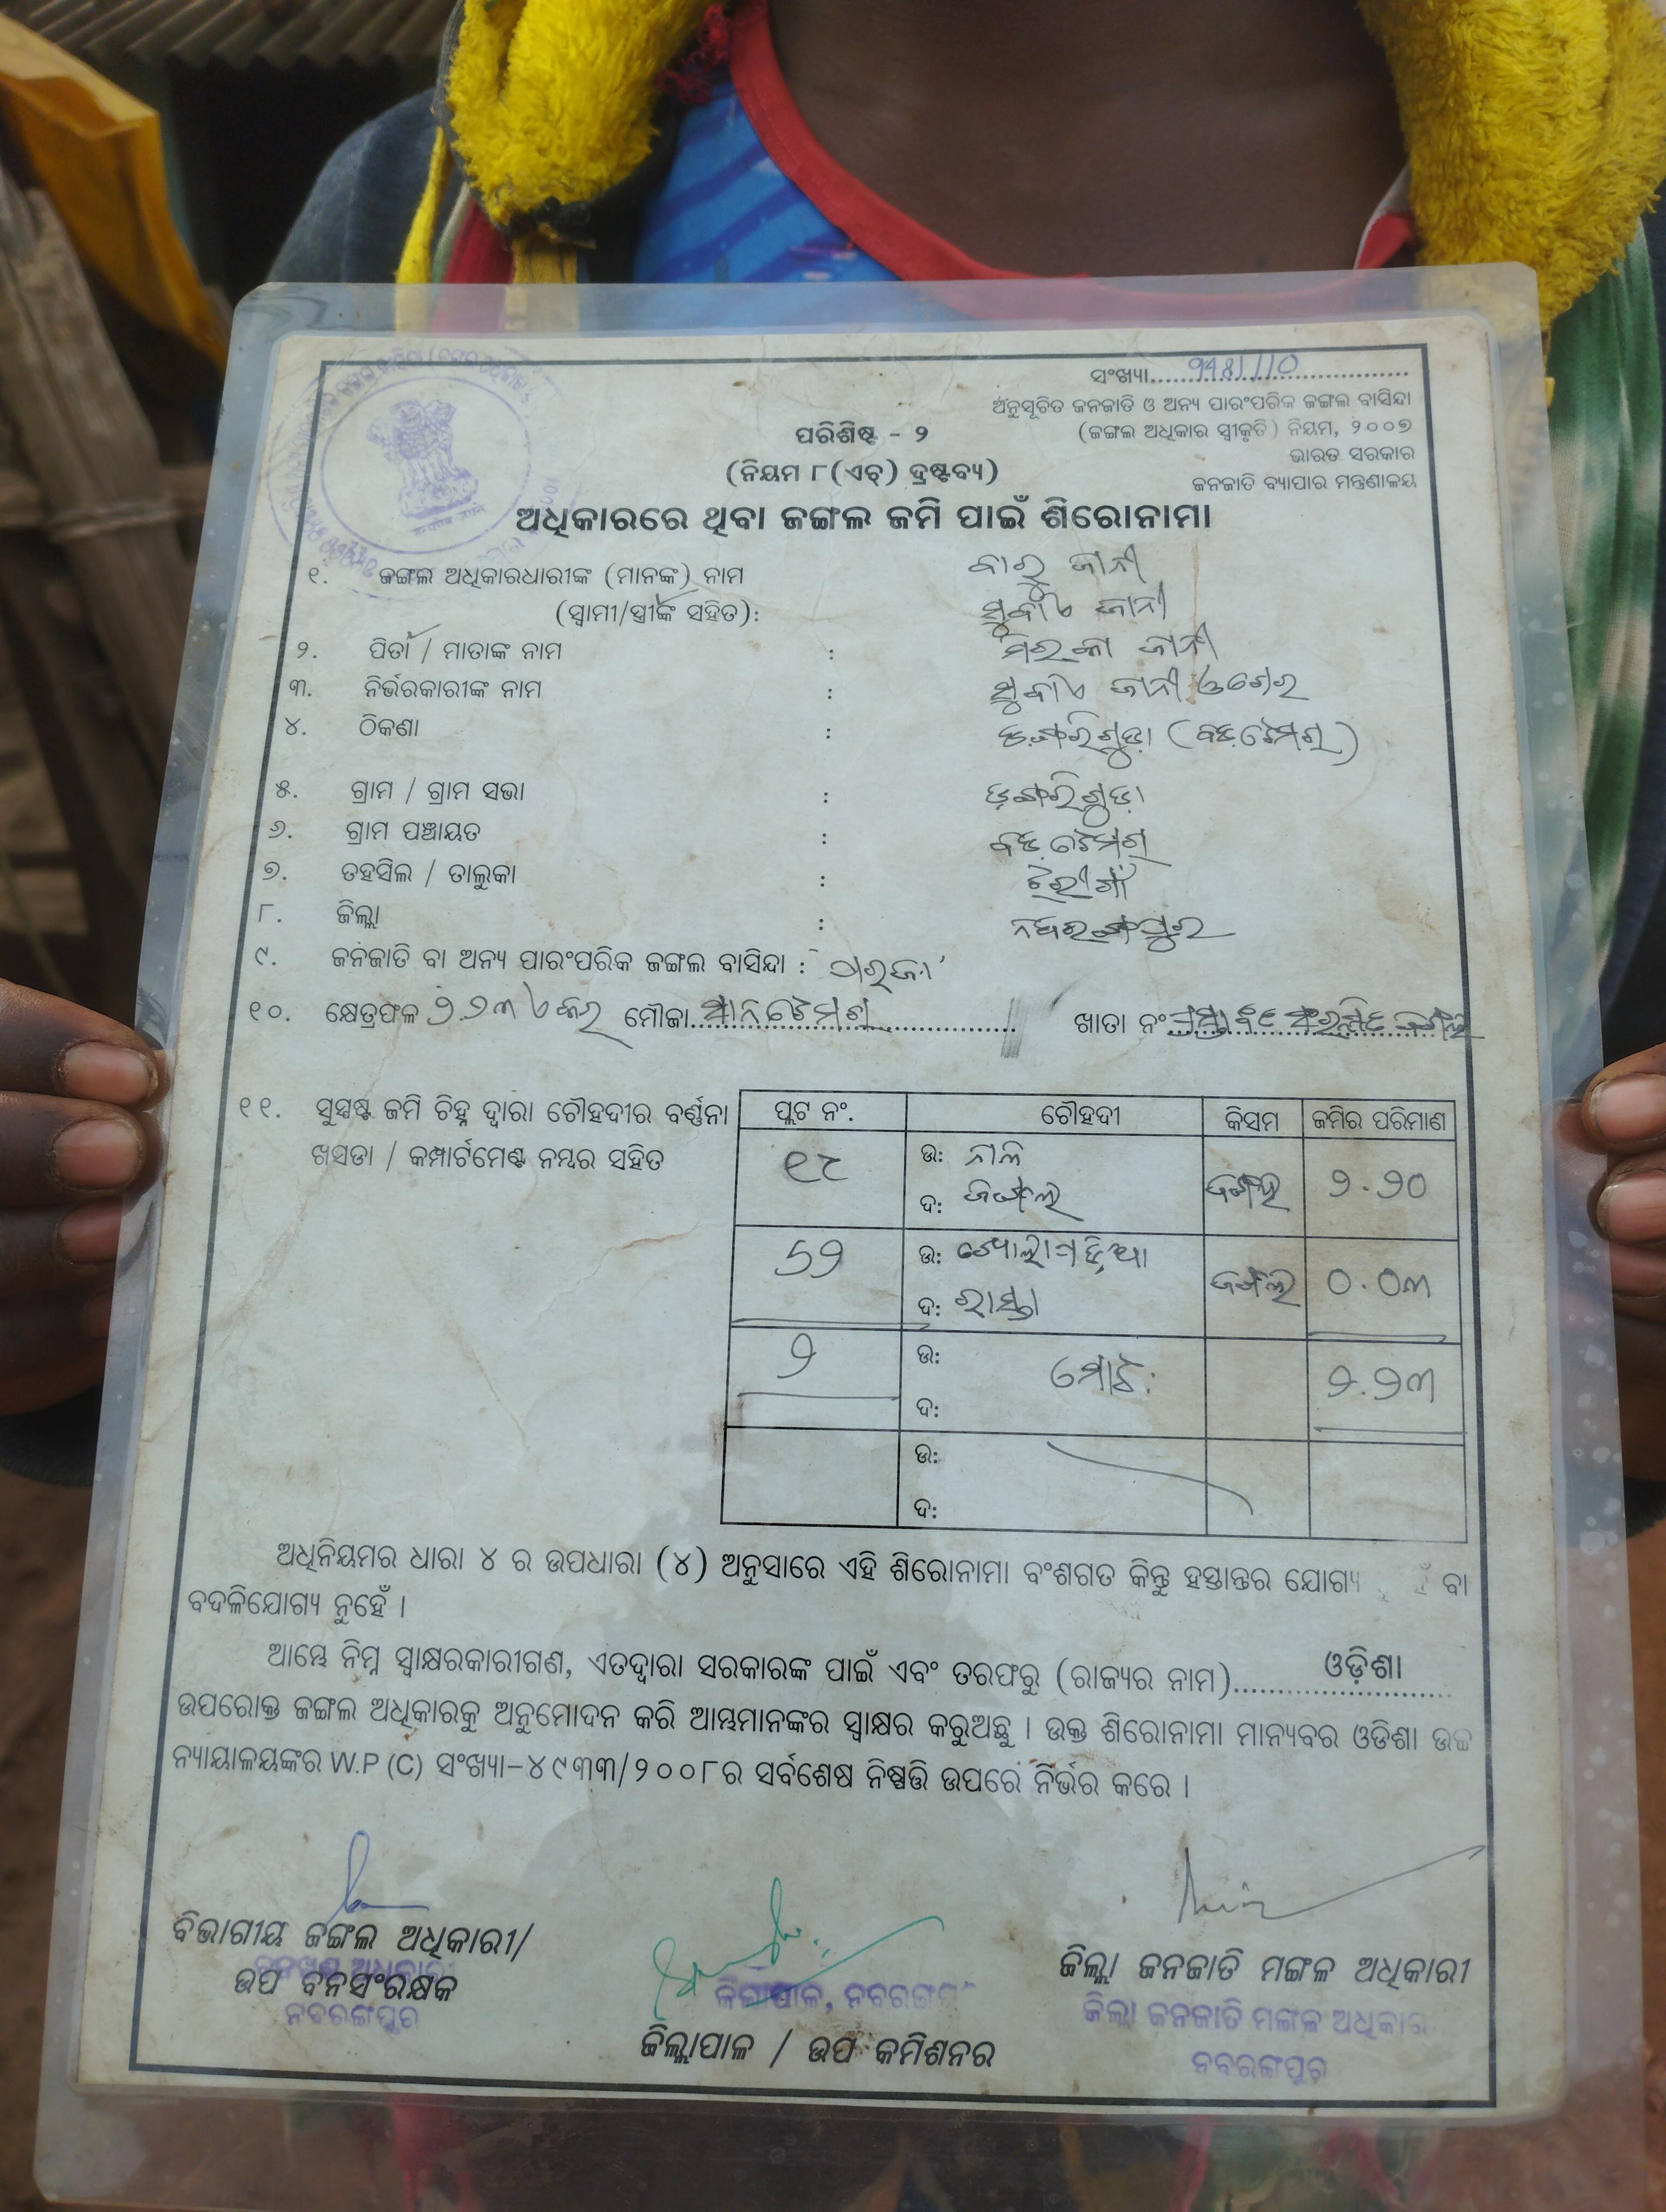 ସଂଖ୍ୟା
ଅନୁସୂଚିତ ଜନଜାତି ଓ ଅନ୍ୟ ପାରଂପରିକ ଜଙ୍ଗଲ ବାସିନ୍ଦା
(ଜଙ୍ଗଲ ଅଧିକାର ସ୍ୱୀକୃତି) ନିୟମ, ୨୦୦୭
ଭାରତ ସରକାର
ଜନଜାତି ବ୍ୟାପାର ମନ୍ତ୍ରଣାଳୟ
ପରିଶିଷ୍ଟ - ୨
(ନିୟମ ୮(ଏଚ୍) ଦ୍ରଷ୍ଟବ୍ୟ)
ଅଧିକାରରେ ଥିବା ଜଙ୍ଗଲ ଜମି ପାଇଁ ଶିରୋନାମା
୧. ଜଙ୍ଗଲ ଅଧିକାରଧାରୀଙ୍କ (ମାନଙ୍କ) ନାମ ବାରୁ ଜାନୀ
(ସ୍ୱାମୀ/ସ୍ତ୍ରୀଙ୍କ ସହିତ): ଜାନୀ
୨. ପିତା / ମାତାଙ୍କ ନାମ : ଜାନୀ
୩. ନିର୍ଭରକାରୀଙ୍କ ନାମ : ଜାନୀ
୪. ଠିକଣା :
୫. ଗ୍ରାମ / ଗ୍ରାମ ସଭା :
୬. ଗ୍ରାମ ପଞ୍ଚାୟତ :
୭. ତହସିଲ / ତାଲୁକା :
୮. ଜିଲ୍ଲା : ନବରଙ୍ଗପୁର
୯. ଜନଜାତି ବା ଅନ୍ୟ ପାରଂପରିକ ଜଙ୍ଗଲ ବାସିନ୍ଦା :
୧୦. କ୍ଷେତ୍ରଫଳ ୨.୨୩ ଏକର ମୌଜା ଖାତା ନଂ
୧୧. ସୁସ୍ପଷ୍ଟ ଜମି ଚିହ୍ନ ଦ୍ୱାରା ଚୌହଦୀର ବର୍ଣ୍ଣନା
ଖସଡା / କମ୍ପାର୍ଟମେଣ୍ଟ ନମ୍ବର ସହିତ
ପ୍ଲଟ ନଂ. ଚୌହଦୀ କିସମ ଜମିର ପରିମାଣ
୧୮ ଉ: ଜଙ୍ଗଲ ୨.୨୦
ଦ: ଜଙ୍ଗଲ
ଉ: ଜଙ୍ଗଲ ୦.୦୩
ଦ: ରାସ୍ତା
୨ ଉ: ମୋଟ: ୨.୨୩
ଦ:
ଉ:
ଦ:
ଅଧିନିୟମର ଧାରା ୪ ର ଉପଧାରା (୪) ଅନୁସାରେ ଏହି ଶିରୋନାମା ବଂଶଗତ କିନ୍ତୁ ହସ୍ତାନ୍ତର ଯୋଗ୍ୟ ବା
ବଦଳିଯୋଗ୍ୟ ନୁହେଁ ।
ଆମ୍ଭେ ନିମ୍ନ ସ୍ୱାକ୍ଷରକାରୀଗଣ, ଏତଦ୍ୱାରା ସରକାରଙ୍କ ପାଇଁ ଏବଂ ତରଫରୁ (ରାଜ୍ୟର ନାମ) ଓଡ଼ିଶା
ଉପରୋକ୍ତ ଜଙ୍ଗଲ ଅଧିକାରକୁ ଅନୁମୋଦନ କରି ଆମ୍ଭମାନଙ୍କର ସ୍ୱାକ୍ଷର କରୁଅଛୁ । ଉକ୍ତ ଶିରୋନାମା ମାନ୍ୟବର ଓଡିଶା ଉଚ୍ଚ
ନ୍ୟାୟାଳୟଙ୍କର W.P (C) ସଂଖ୍ୟା-୪୯୩୩/୨୦୦୮ର ସର୍ବଶେଷ ନିଷ୍ପତ୍ତି ଉପରେ ନିର୍ଭର କରେ ।
ବିଭାଗୀୟ ଜଙ୍ଗଲ ଅଧିକାରୀ/
ଉପ ବନସଂରକ୍ଷକ
ନବରଙ୍ଗପୁର
ଜିଲ୍ଲାପାଳ, ନବରଙ୍ଗପୁର
ଜିଲ୍ଲାପାଳ / ଉପ କମିଶନର
ଜିଲ୍ଲା ଜନଜାତି ମଙ୍ଗଳ ଅଧିକାରୀ
ଜିଲ୍ଲା ଜନଜାତି ମଙ୍ଗଳ ଅଧିକାରୀ
ନବରଙ୍ଗପୁର